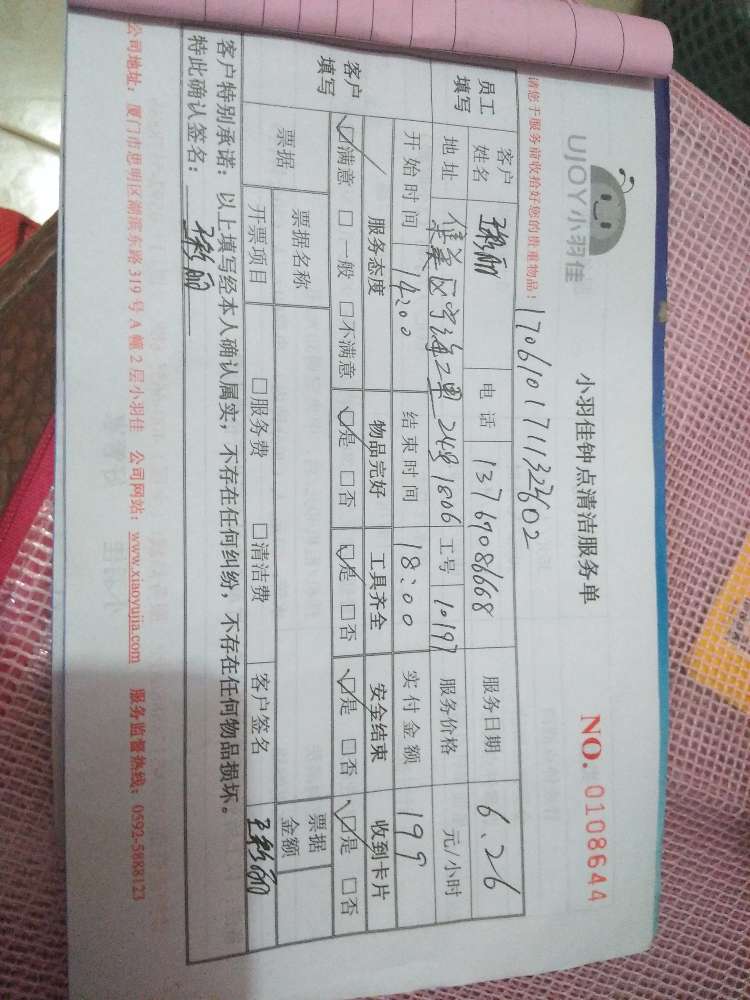 UJOY小羽佳
小羽佳钟点清洁服务单
NO. 0108644
请您于服务前收拾好您的贵重物品!
170610171132602
员工填写 客户姓名 电话 13769086668 服务日期 6.26
地址 集美区宁海二里 24号 1806 工号 10197 服务价格 元/小时
开始时间 14:00 结束时间 18:00 实付金额 199
客户填写 服务态度 物品完好 工具齐全 安全结束 收到卡片
☑满意 □一般 □不满意 ☑是 □否 ☑是 □否 ☑是 □否 ☑是 □否
票据 票据名称 票据金额
开票项目 □服务费 □清洁费 客户签名
客户特别承诺:以上填写经本人确认属实,不存在任何纠纷,不存在任何物品损坏。
特此确认签名:
公司地址:厦门市思明区湖滨东路 319 号 A 幢 2 层小羽佳 公司网站:www.xiaoyujia.com 服务监督热线:0592-5888123